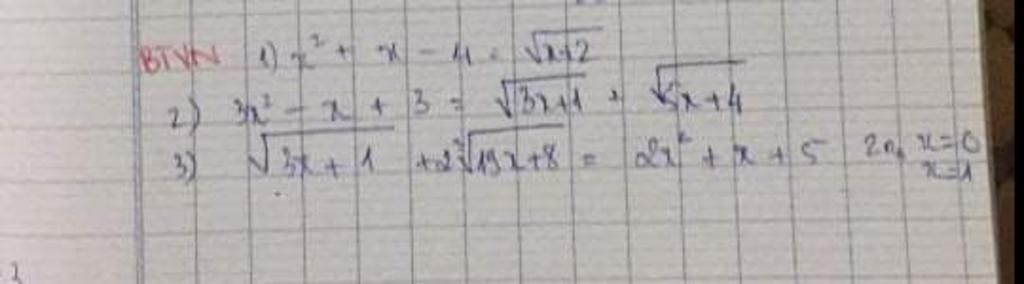 BTVN 1) x² + x - 4 = √(x+2)
2) 3x² - x + 3 = √(3x+1) + √(5x+4)
3) √(3x+1) + 2∛(19x+8) = 2x² + x + 5 2n₀ x=0
x=1